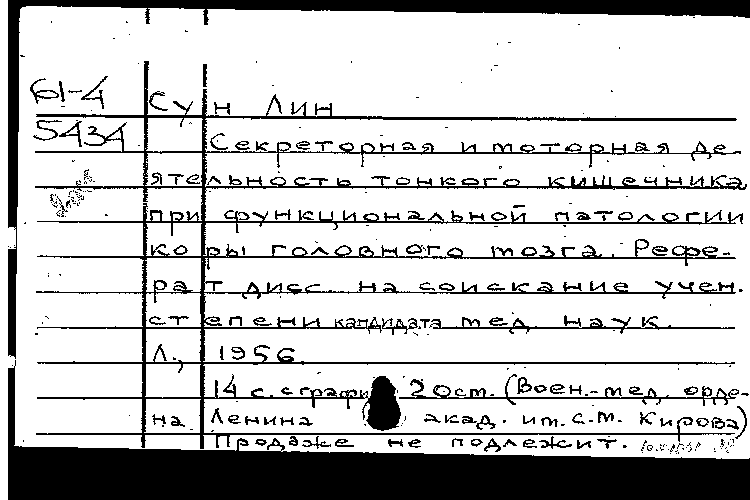 61-4
5434
Сун Лин
Секреторная и моторная де-
ятельность тонкого кишечника
при функциональной патологии
коры головного мозга. Рефе-
рат дисс. на соискание учен.
степени кандидата мед. наук.
Л., 1956.
14 с. с графи 20 см. (Воен.-мед. орде-
на Ленина акад. им. С.М. Кирова)
Продаже не подлежит.